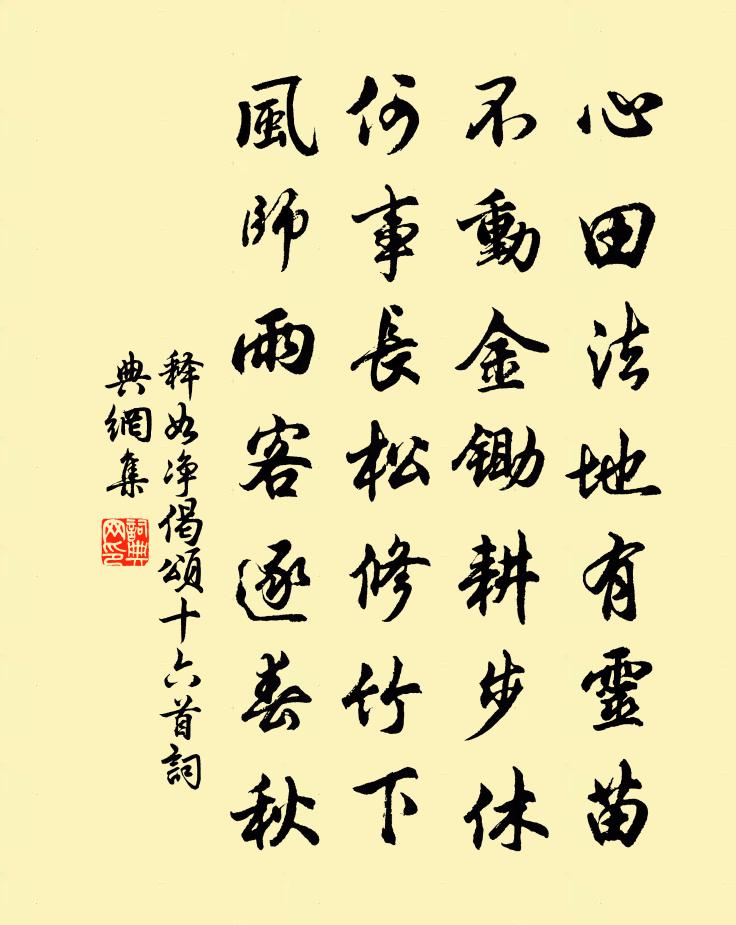 心田法地有靈苗
不動金鋤耕步休
何事長松修竹下
風師雨客逐春秋
释如净偈頌十六首詞
典網集
詞典网印